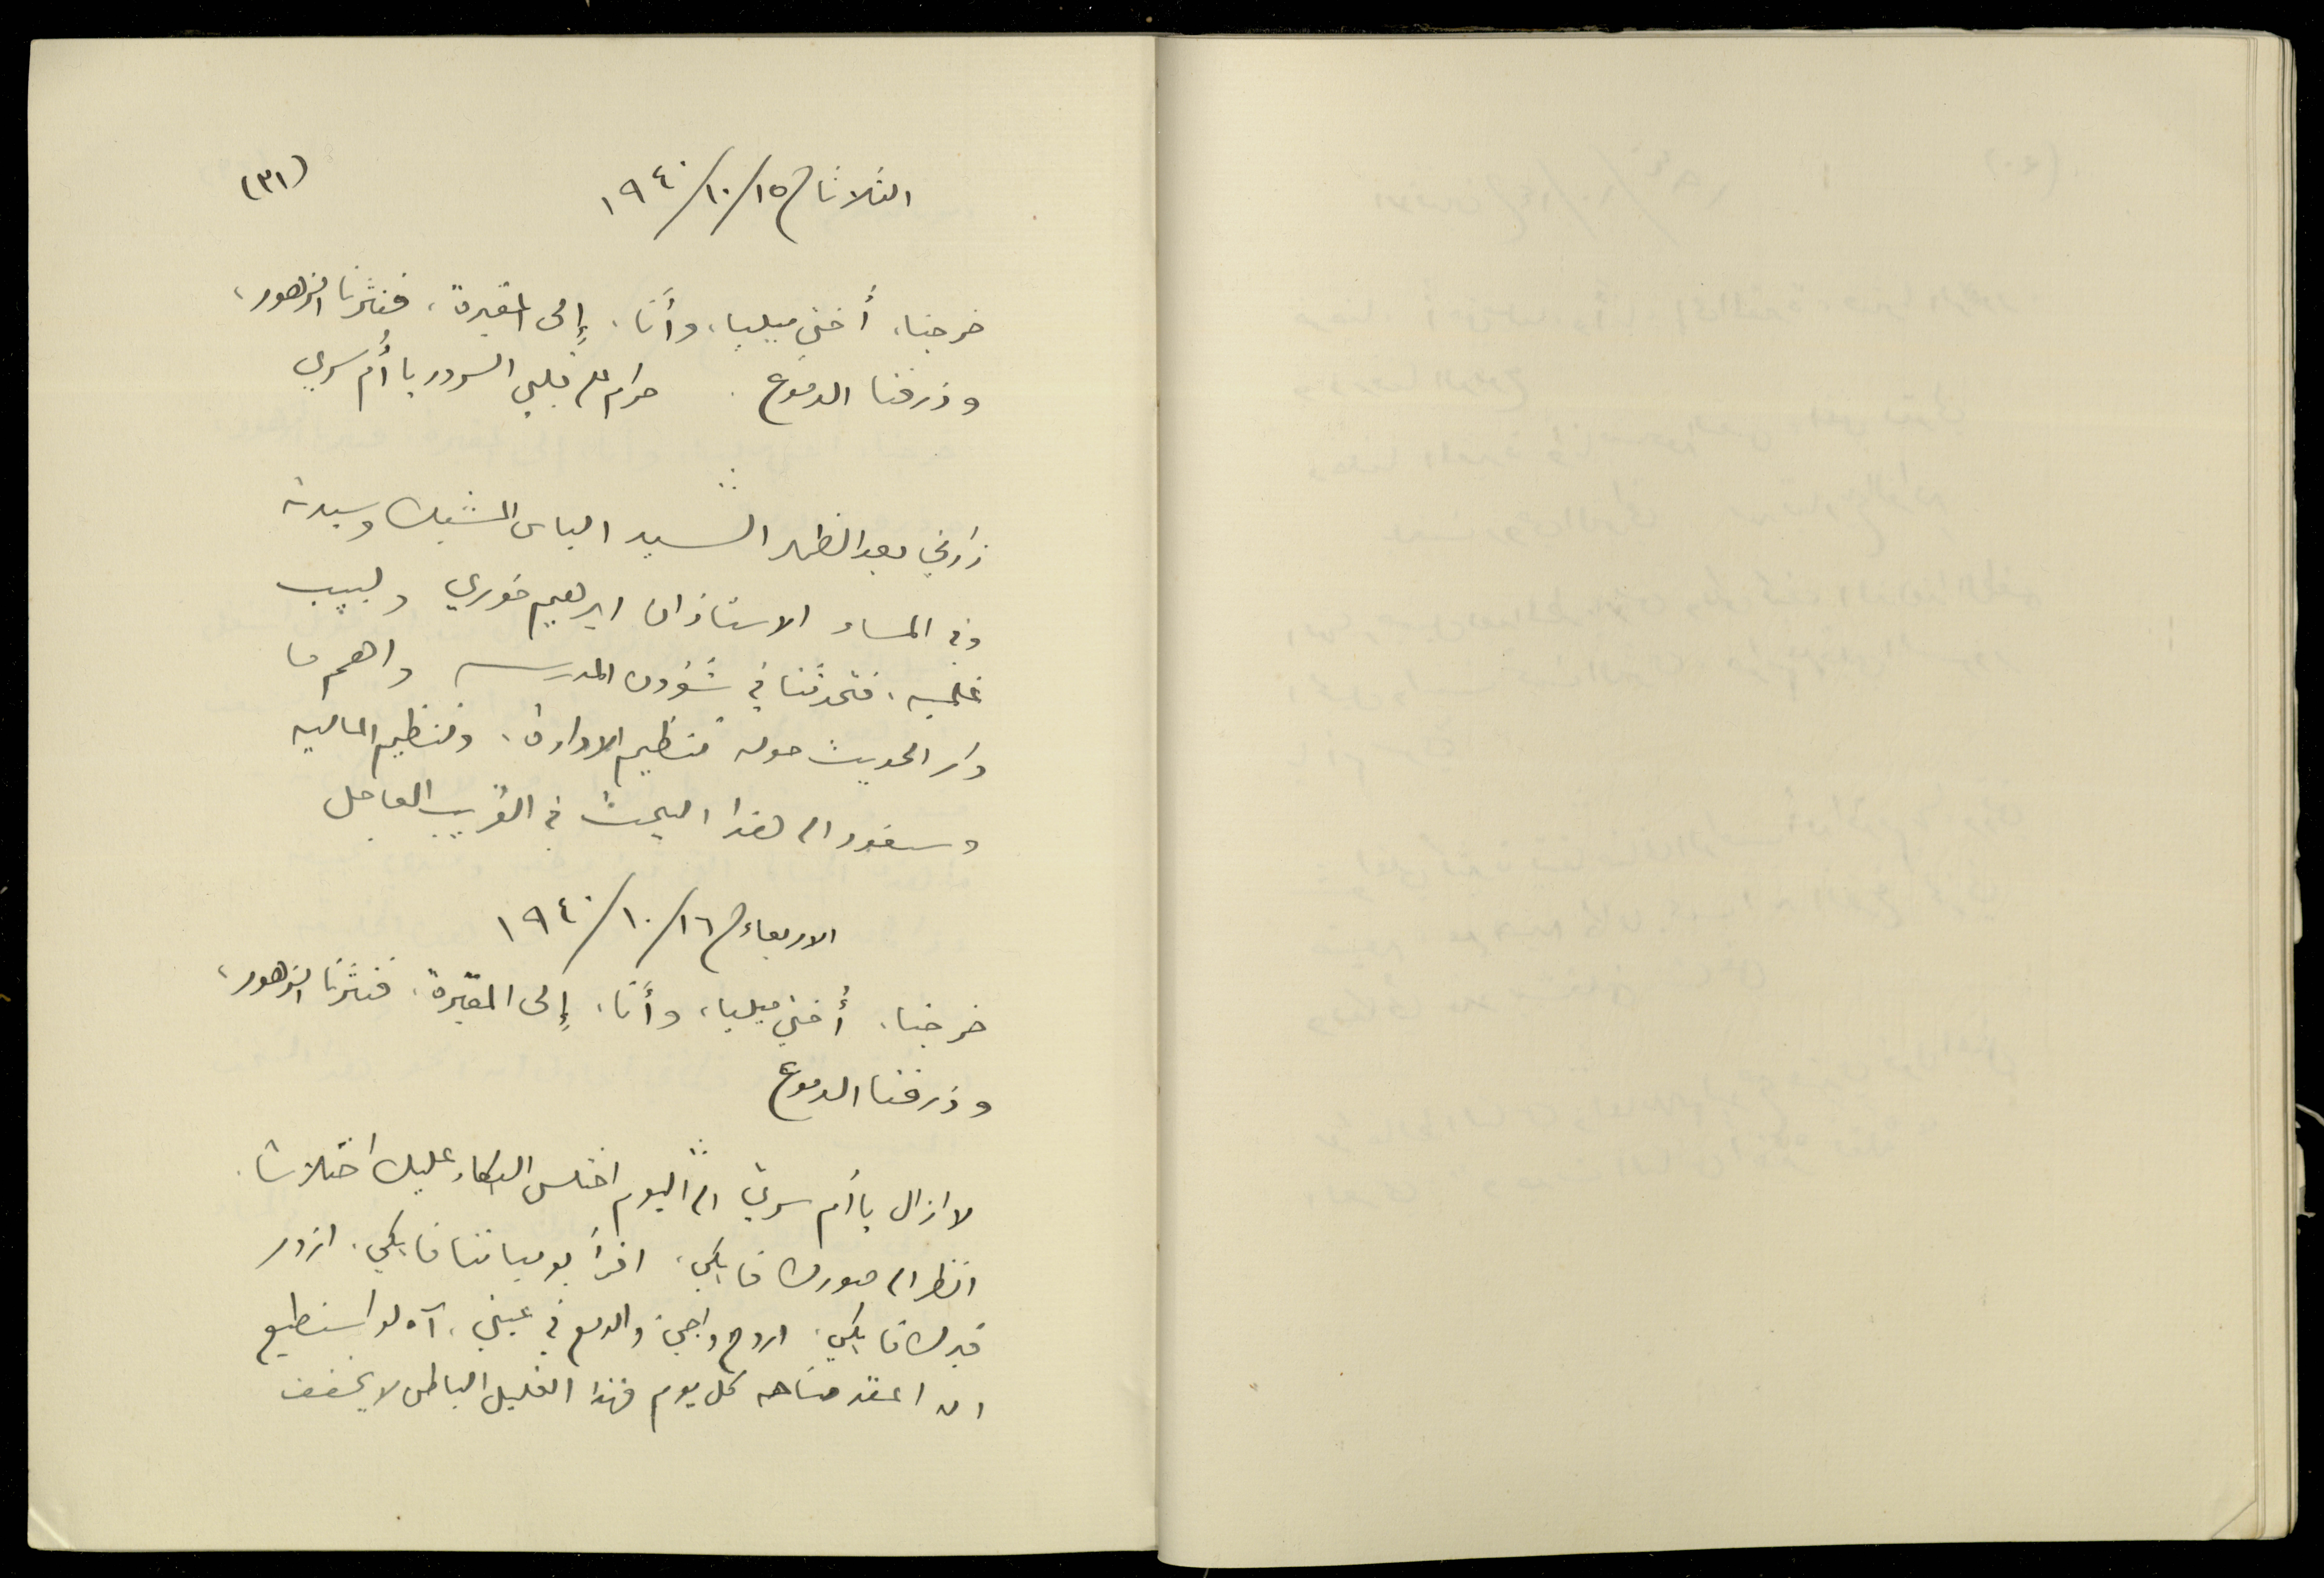 (٣١)
الثلاثاء ١٥/١٠/١٩٤٠
خرجنا، أختي ميليا، وأنا، إلى المقبرة، فنثرنا الزهور،
وذرفنا الدموع. حرام على قلبي السرور يا أم سري
زارني بعد الظهر السيد الياس المشبك وسيدته
وفي المساء الاستاذان ابرهيم خوري ولبيب
غلميه، فتحدثنا في شؤون المدرسه واهم ما
دار الحديث حوله تنظيم الادارة، وتنظيم الماليه
وسنعود الى هذا البحث في القريب العاجل
الاربعاء ١٦/١٠/١٩٤٠
خرجنا، أختي ميليا، وأنا، إلى المقبرة، فنثرنا الزهور،
وذرفنا الدموع
لا ازال يا أم سري الى اليوم اختلس البكاء عليك اختلاسا.
انظر الى صورك فابكي، اقرأ يومياتنا فابكي، ازور
قبرك فابكي، اروح واجيء والدمع في عيني، آه لو استطيع
ان اعقد مناحه كل يوم فهذا القليل الباطن لا يخفف